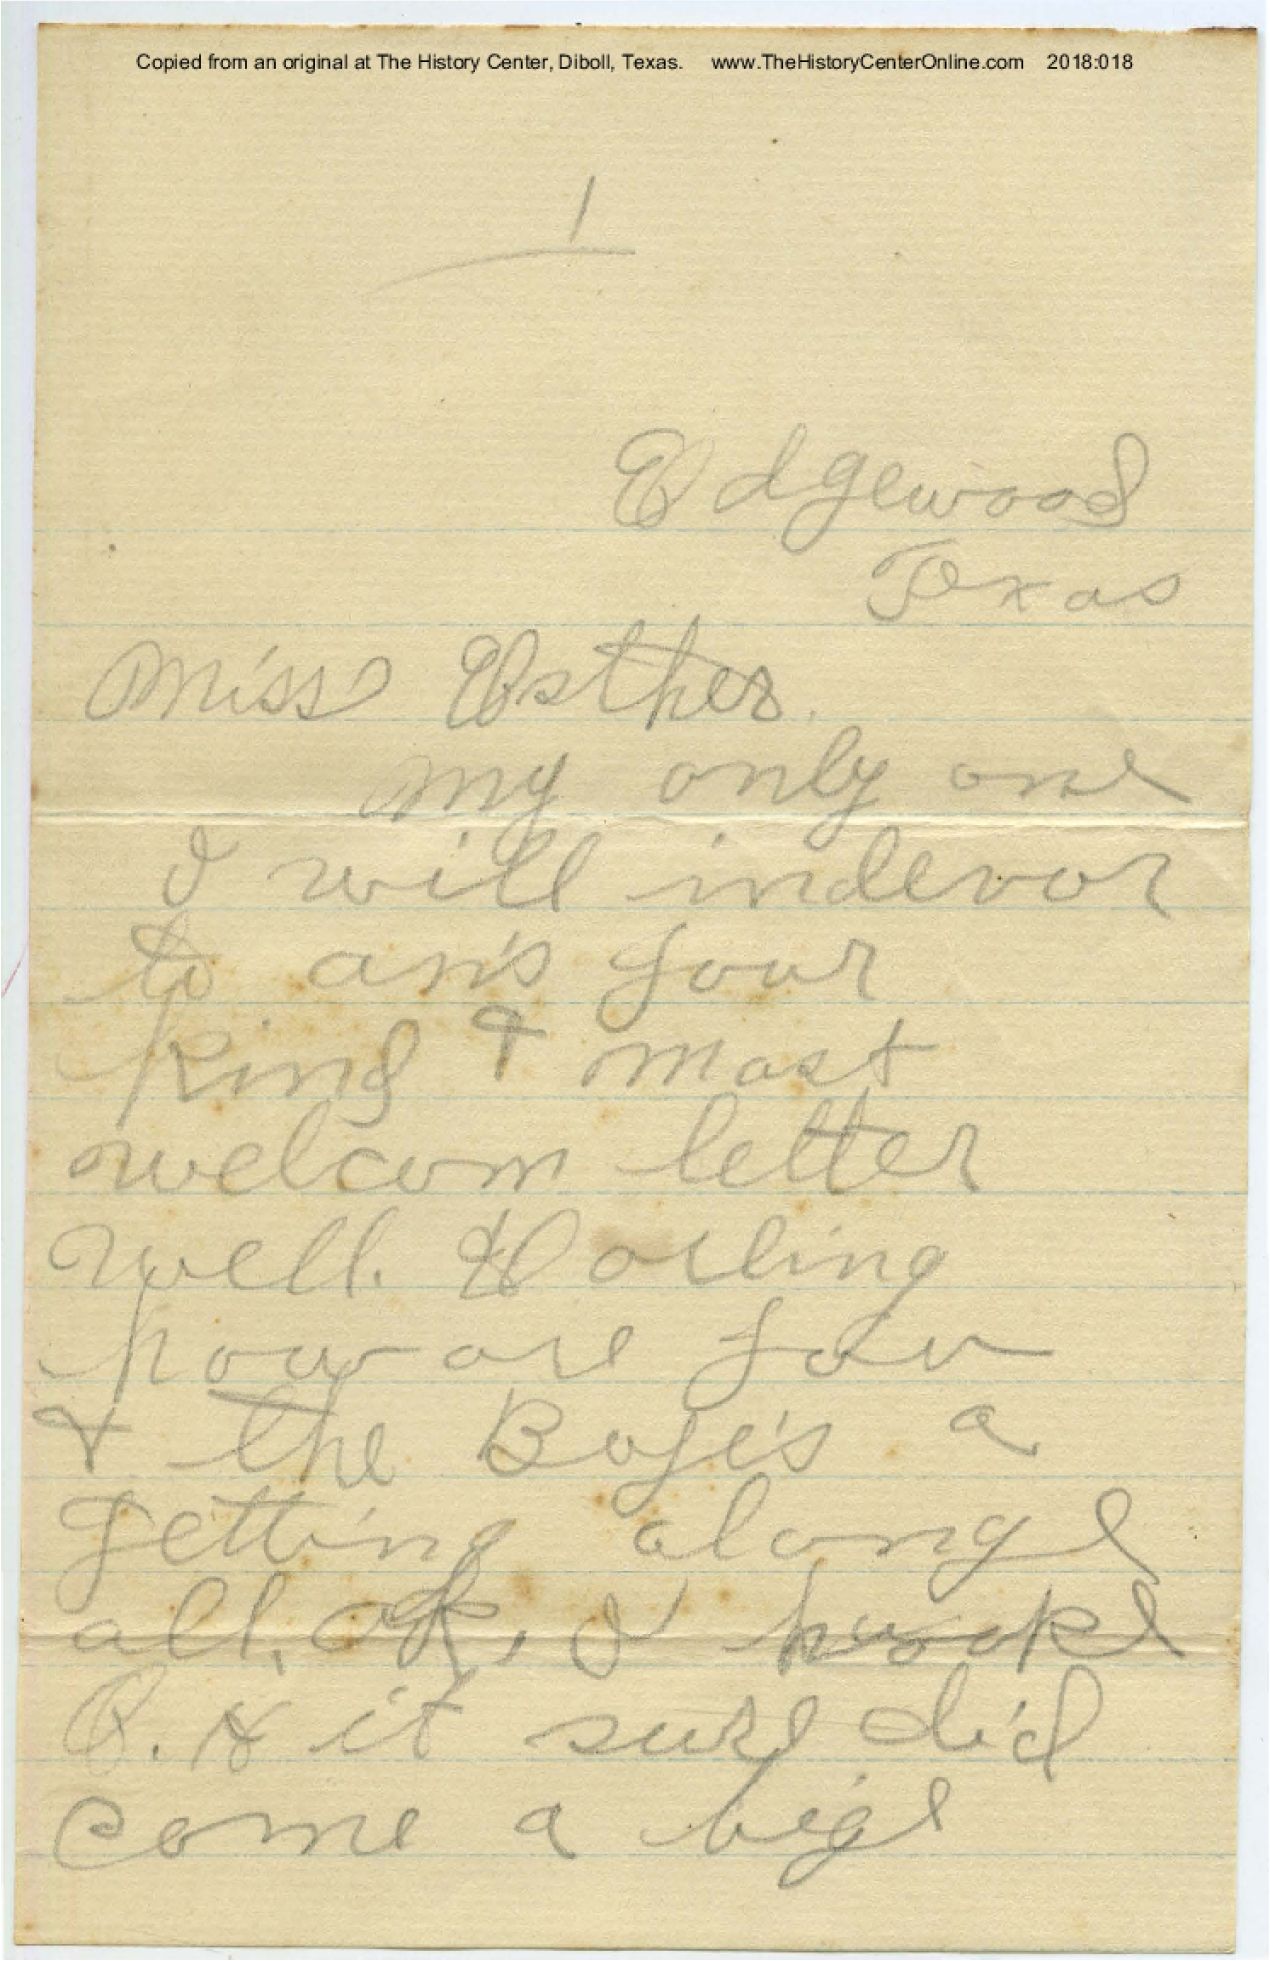 Copied from an original at The History Center, Diboll, Texas. www.TheHistoryCenterOnline.com 2018:018
1
Edgewood
Texas
Miss Esther.
my only one
I will indevor
to ans your
kind & most
welcom letter
well. Darling
how are you
& the Boye's a
getting alonge
all, ok, I hwope
O. & it sure did
come a bige